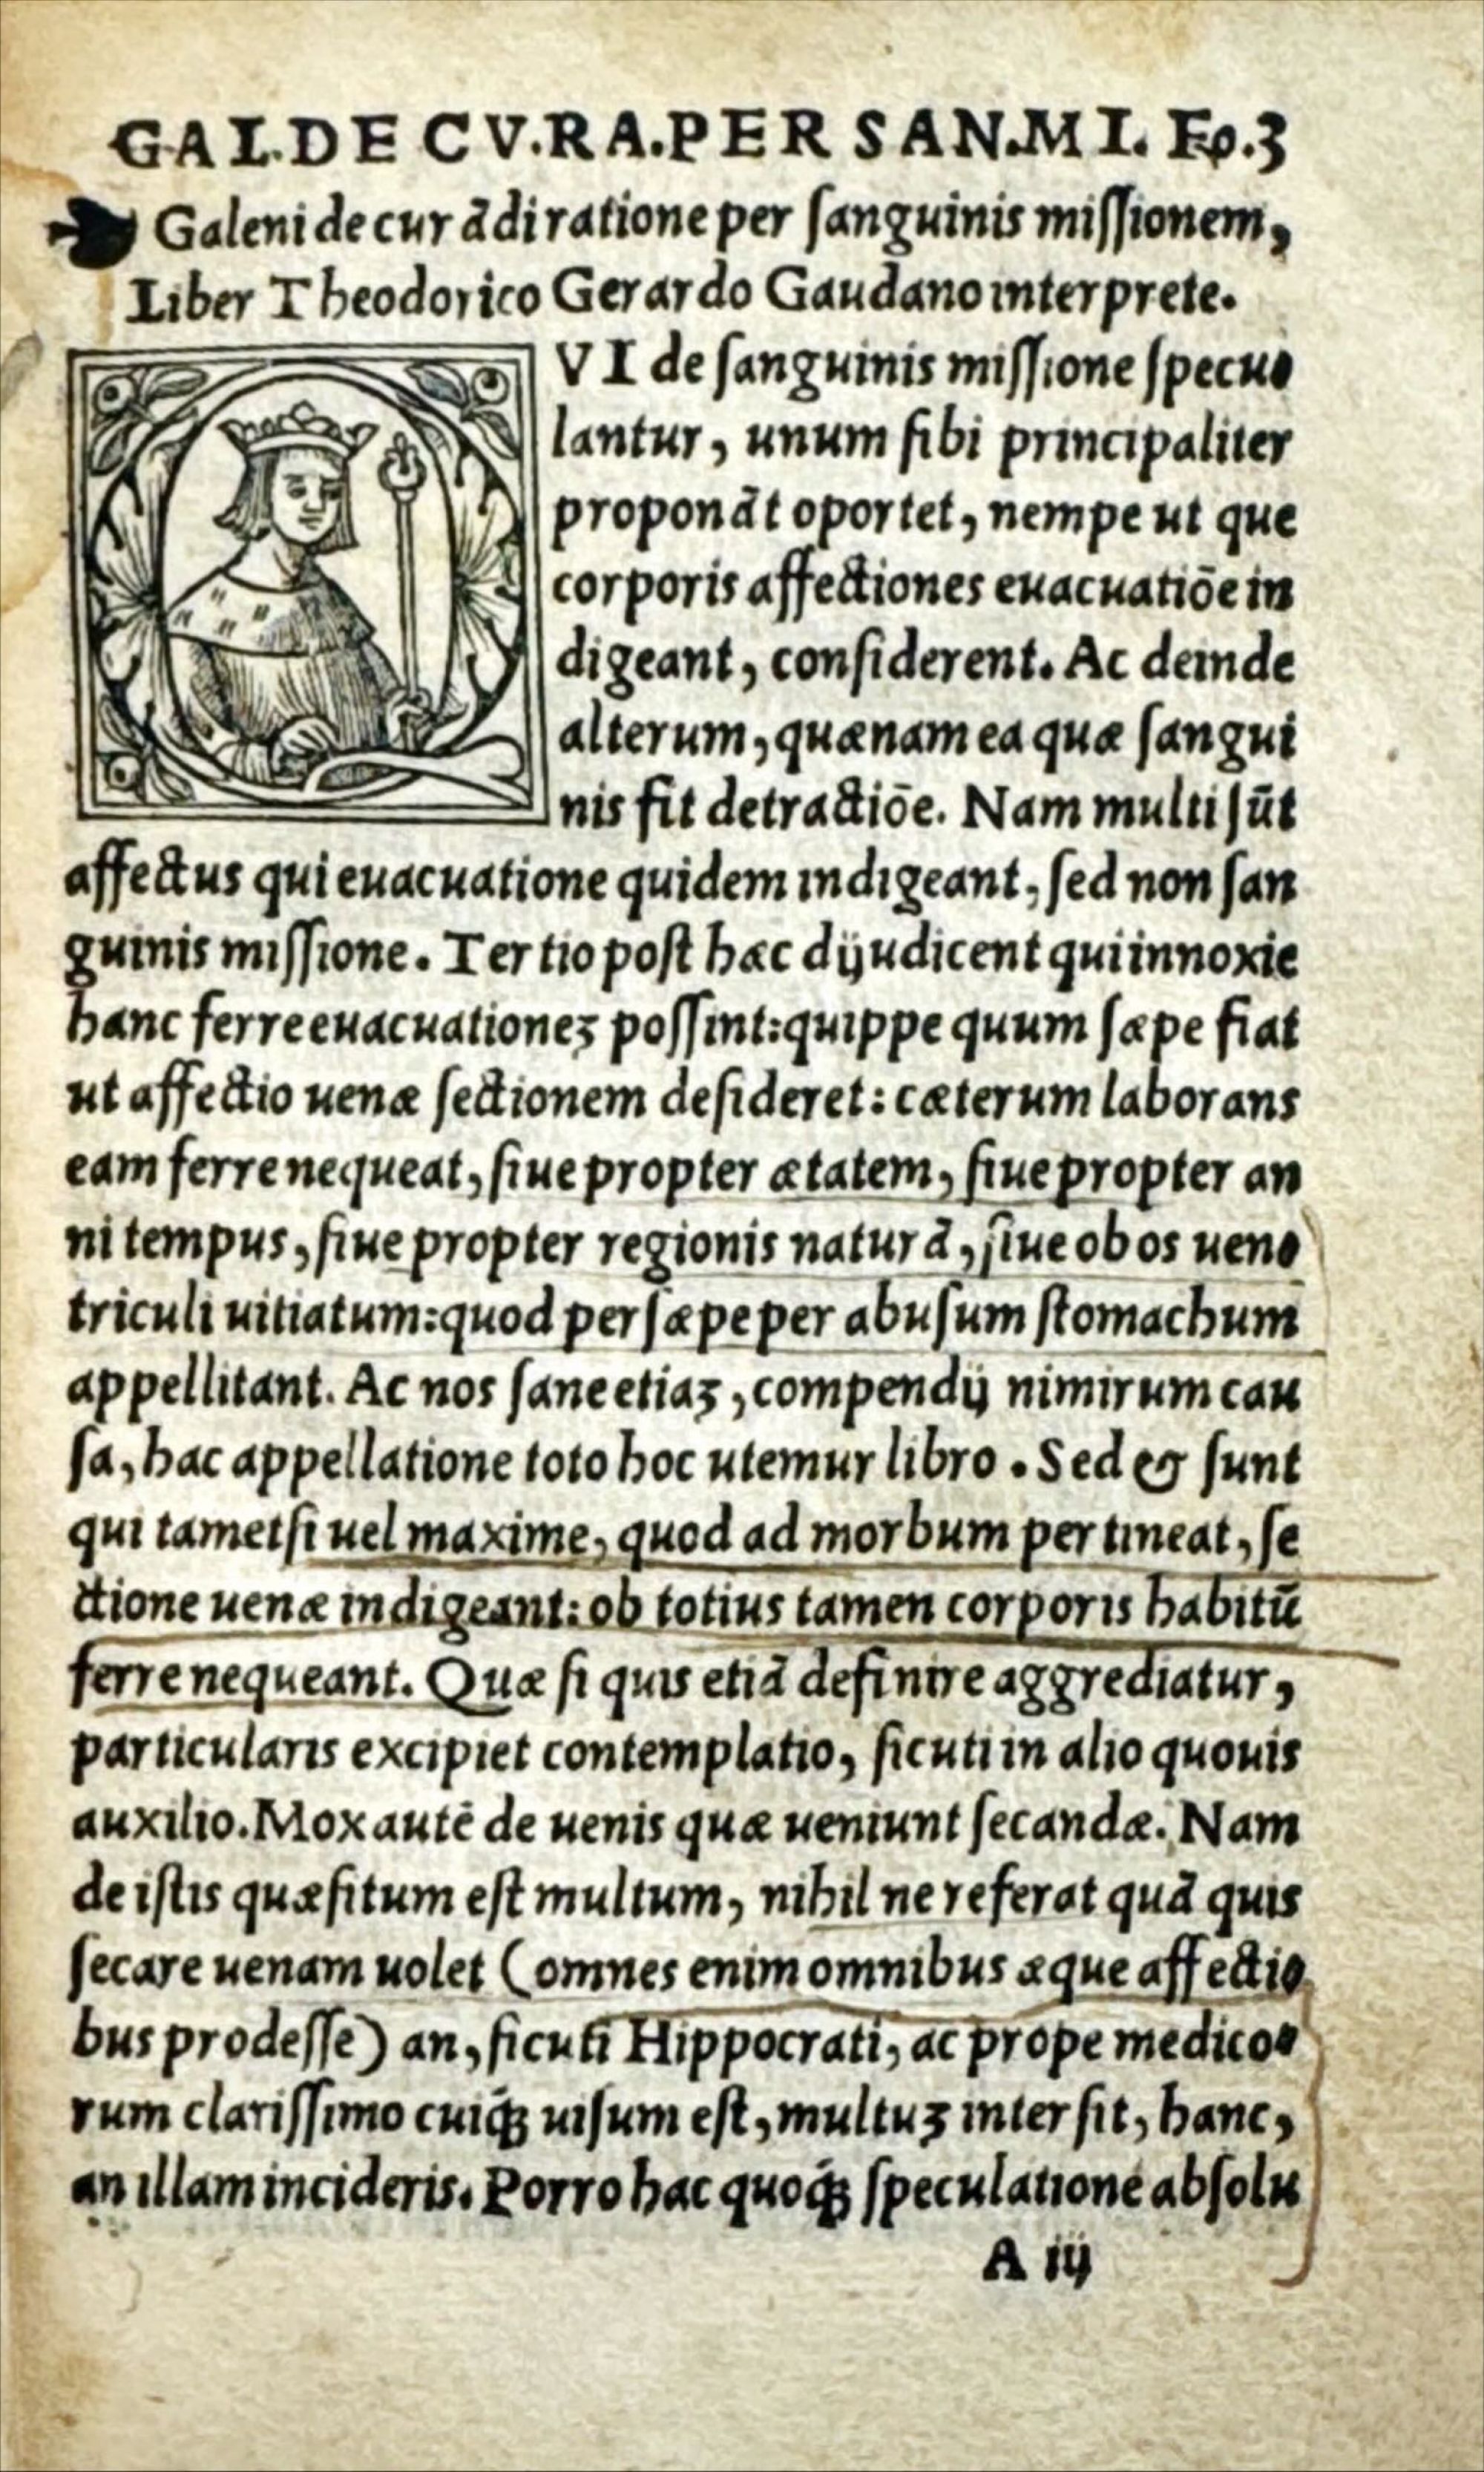 GAL.DE CV.RA.PER SAN.MI. Fo.3
Galeni de curādi ratione per ſanguinis miſſionem,
Liber Theodorico Gerardo Gaudano interprete.
QVI de ſanguinis miſſione ſpecu-
lantur, unum ſibi principaliter
proponāt oportet, nempe ut que
corporis affectiones euacuatiōe in
digeant, conſiderent. Ac deinde
alterum, quænam ea quæ ſangui
nis fit detractiōe. Nam multi ſūt
affectus qui euacuatione quidem indigeant, ſed non ſan
guinis miſſione. Tertio poſt hæc dijudicent qui innoxie
hanc ferre euacuationeꝫ poſſint: quippe quum ſæpe fiat
ut affectio uenæ ſectionem deſideret: cæterum laborans
eam ferre nequeat, ſiue propter ætatem, ſiue propter an
ni tempus, ſiue propter regionis naturā, ſiue ob os uen-
triculi uitiatum: quod perſæpe per abuſum ſtomachum
appellitant. Ac nos ſane etiaꝫ, compendij nimirum cau
ſa, hac appellatione toto hoc utemur libro. Sed & ſunt
qui tametſi uel maxime, quod ad morbum pertineat, ſe
ctione uenæ indigeant: ob totius tamen corporis habitū
ferre nequeant. Quæ ſi quis etiā definire aggrediatur,
particularis excipiet contemplatio, ſicuti in alio quouis
auxilio. Mox autē de uenis quæ ueniunt ſecandæ. Nam
de iſtis quæſitum eſt multum, nihil ne referat quā quis
ſecare uenam uolet (omnes enim omnibus æque affectio
bus prodeſſe) an, ſicuti Hippocrati, ac prope medico-
rum clariſſimo cuiqꝫ uiſum eſt, multuꝫ interſit, hanc,
an illam incideris. Porro hac quoqꝫ ſpeculatione abſolu
A iij